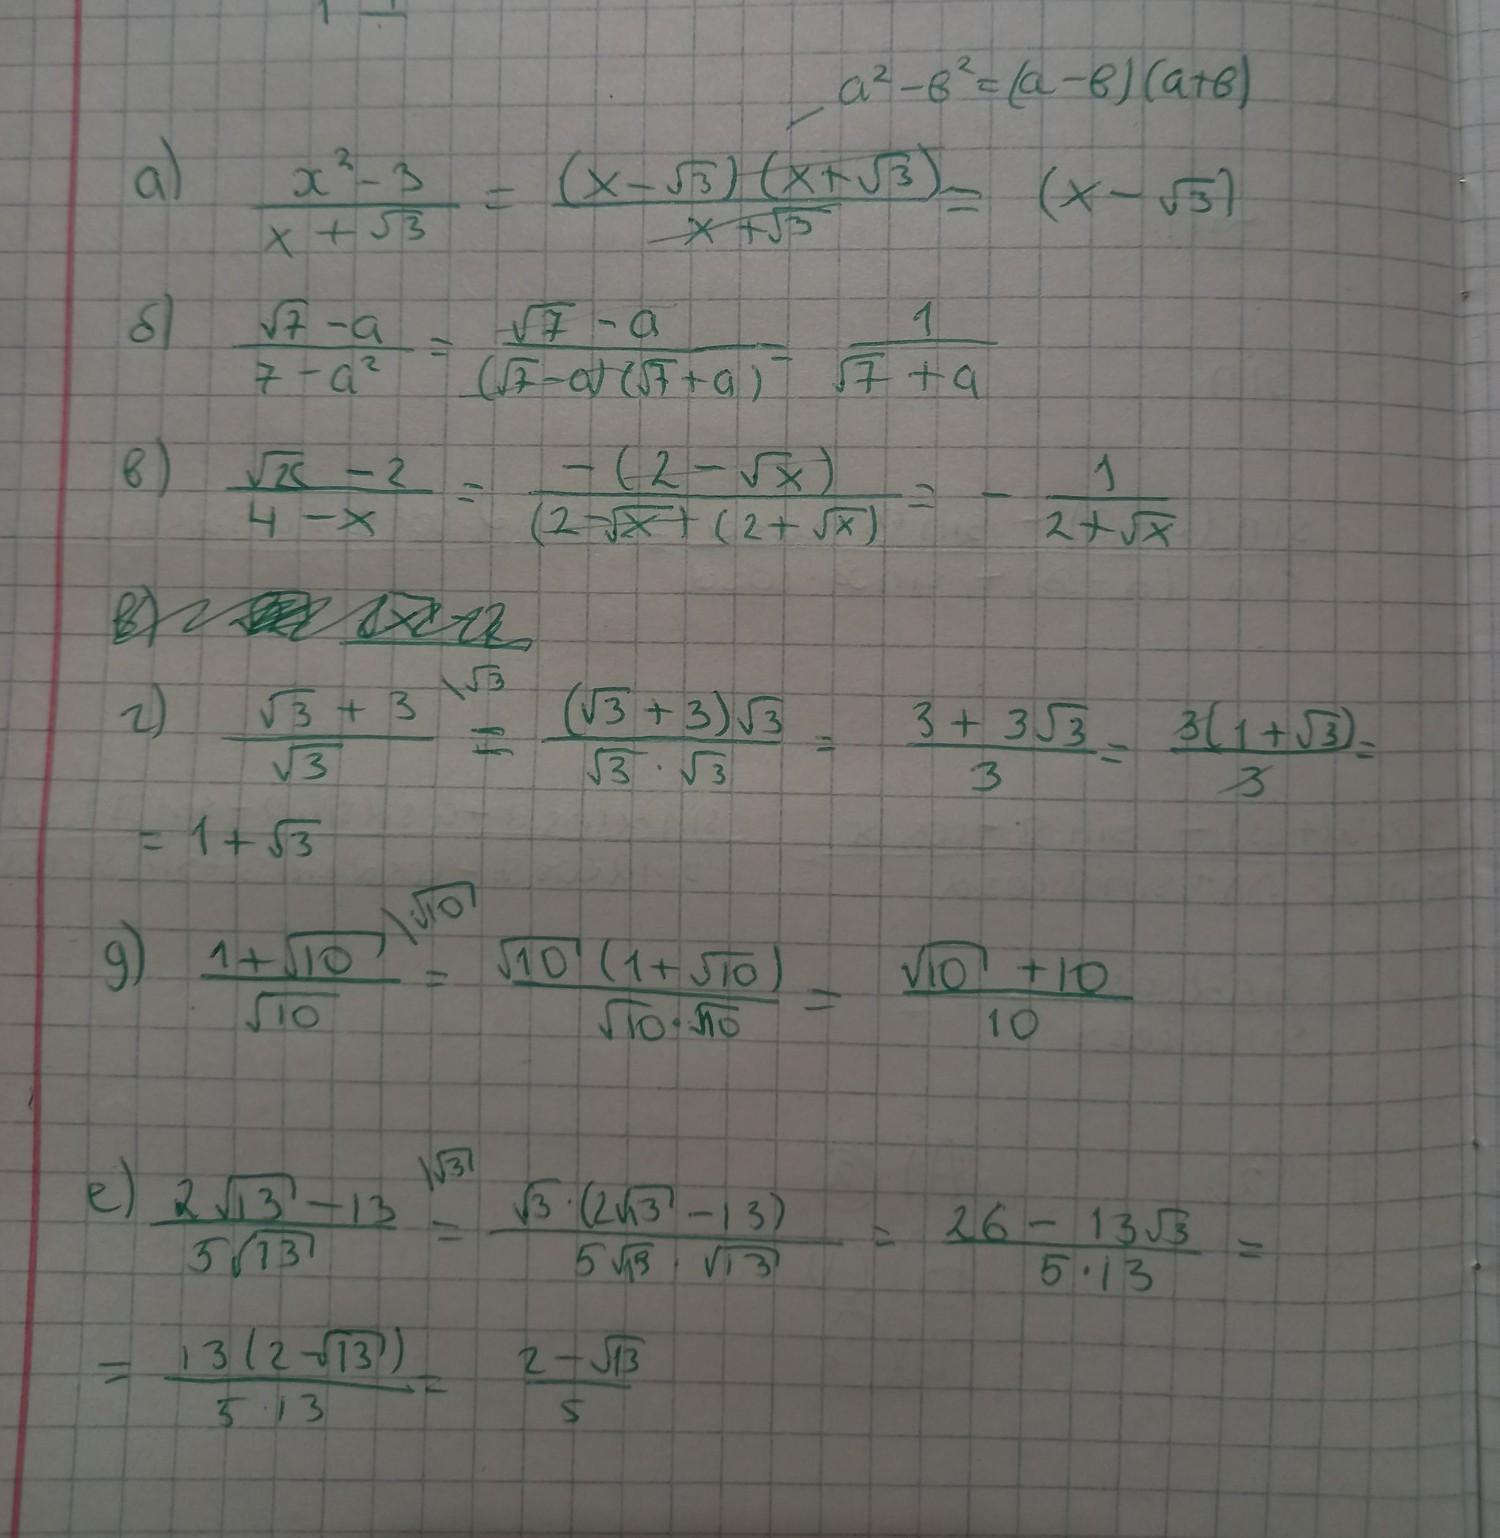 a² - в² = (a - в)(a + в)
а) (x² - 3)/(x + √3) = ((x - √3)(x + √3))/(x + √3) = (x - √3)
б) (√7 - a)/(7 - a²) = (√7 - a)/((√7 - a)(√7 + a)) = 1/(√7 + a)
в) (√x - 2)/(4 - x) = (-(2 - √x))/((2 - √x)(2 + √x)) = - 1/(2 + √x)
в)
г) (√3 + 3)/√3 \√3 = ((√3 + 3)√3)/(√3 · √3) = (3 + 3√3)/3 = (3(1 + √3))/3 =
= 1 + √3
д) (1 + √10)/√10 \√10 = (√10 (1 + √10))/(√10 · √10) = (√10 + 10)/10
е) (2√13 - 13)/(5√13) \√3 = (√3 · (2√13 - 13))/(5√13 · √13) = (26 - 13√3)/(5 · 13) =
= (13(2 - √13))/(5 · 13) = (2 - √13)/5